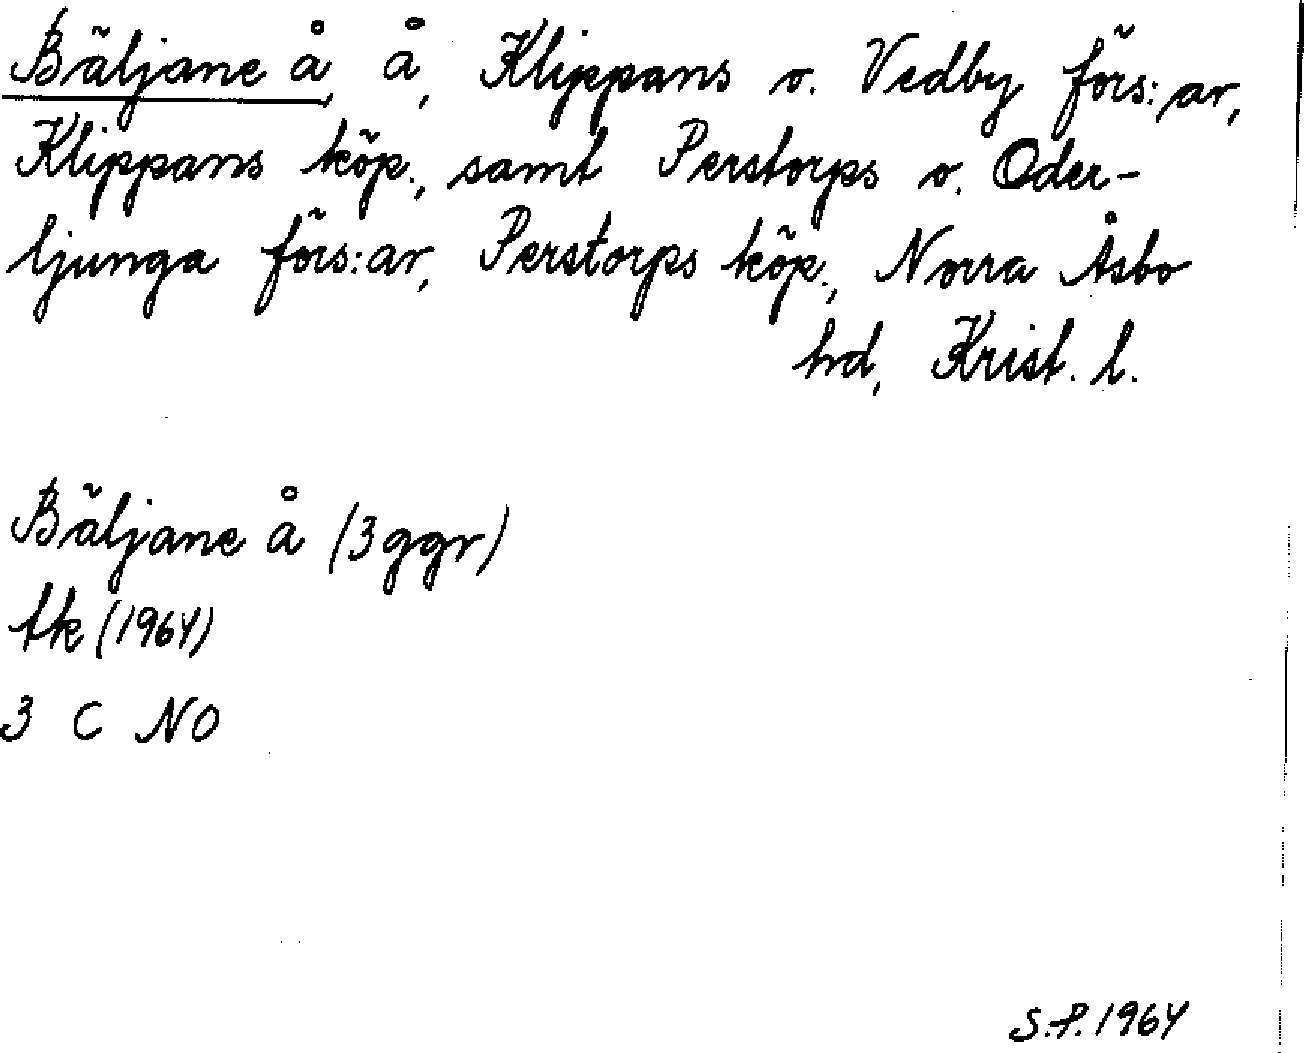 Bäljane å å, Klippans o. Vedby förs:ar,
Klippans köp., samt Perstorps o. Oder-
ljunga förs:ar, Perstorps köp., Norra Åsbo
hd, Krist. l.
Bäljane å (3 ggr)
tk (1964)
3 C NO
S.P. 1964